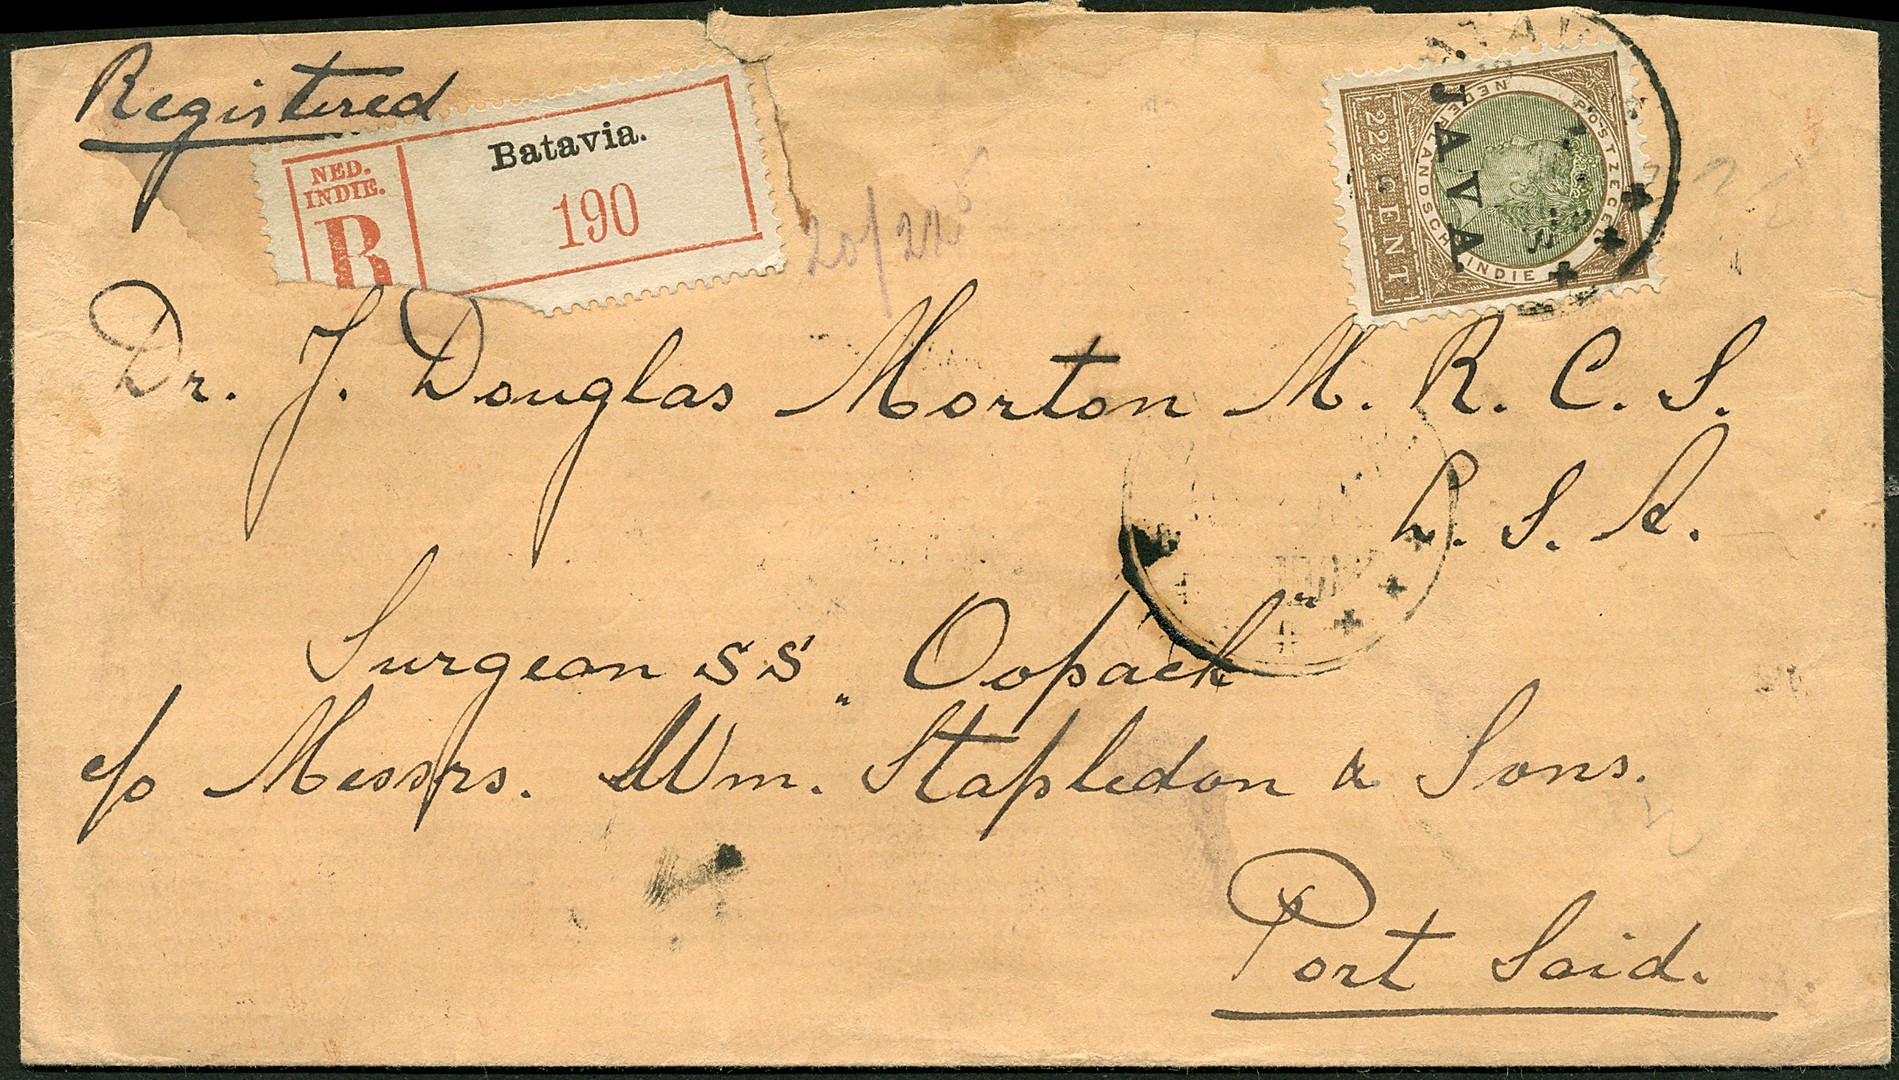 Registered
NED.
INDIE.
R
Batavia.
190
POSTZEGEL
NEDERLANDSCH INDIE
22½ CENT
JAVA
Dr. J. Douglas Morton M. R. C. S.
L. S. A.
Surgeon SS „Oopack"
c/o Messrs. Wm. Stapledon & Sons.
Port Said.